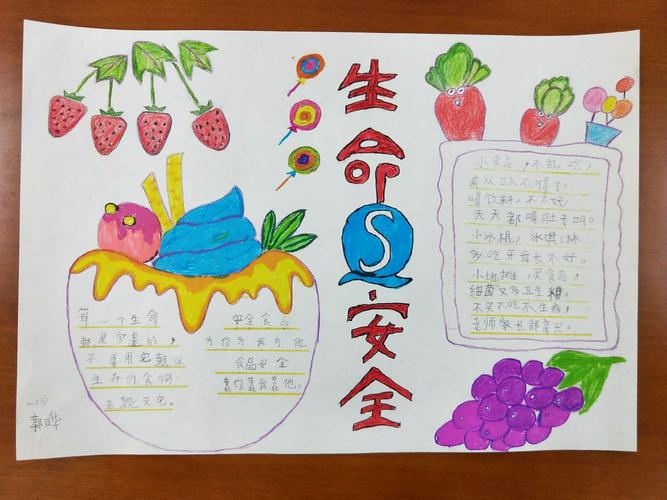 生命
S
安全
每一个生命
都是宝贵的，
不要用
生存的食物
来毁灭它。
安全食品
为你为我为他
食品安全
靠你靠我靠他。
小食品，不乱吃，
病从口入不得了
喝饮料，不太好
天天都喝肚子叫。
小冰棍，冰淇淋
多吃牙齿长不好。
小地摊，买食品，
细菌又多卫生糟。
不买不吃不生病，
老师家长都高兴。
一(3)
郭